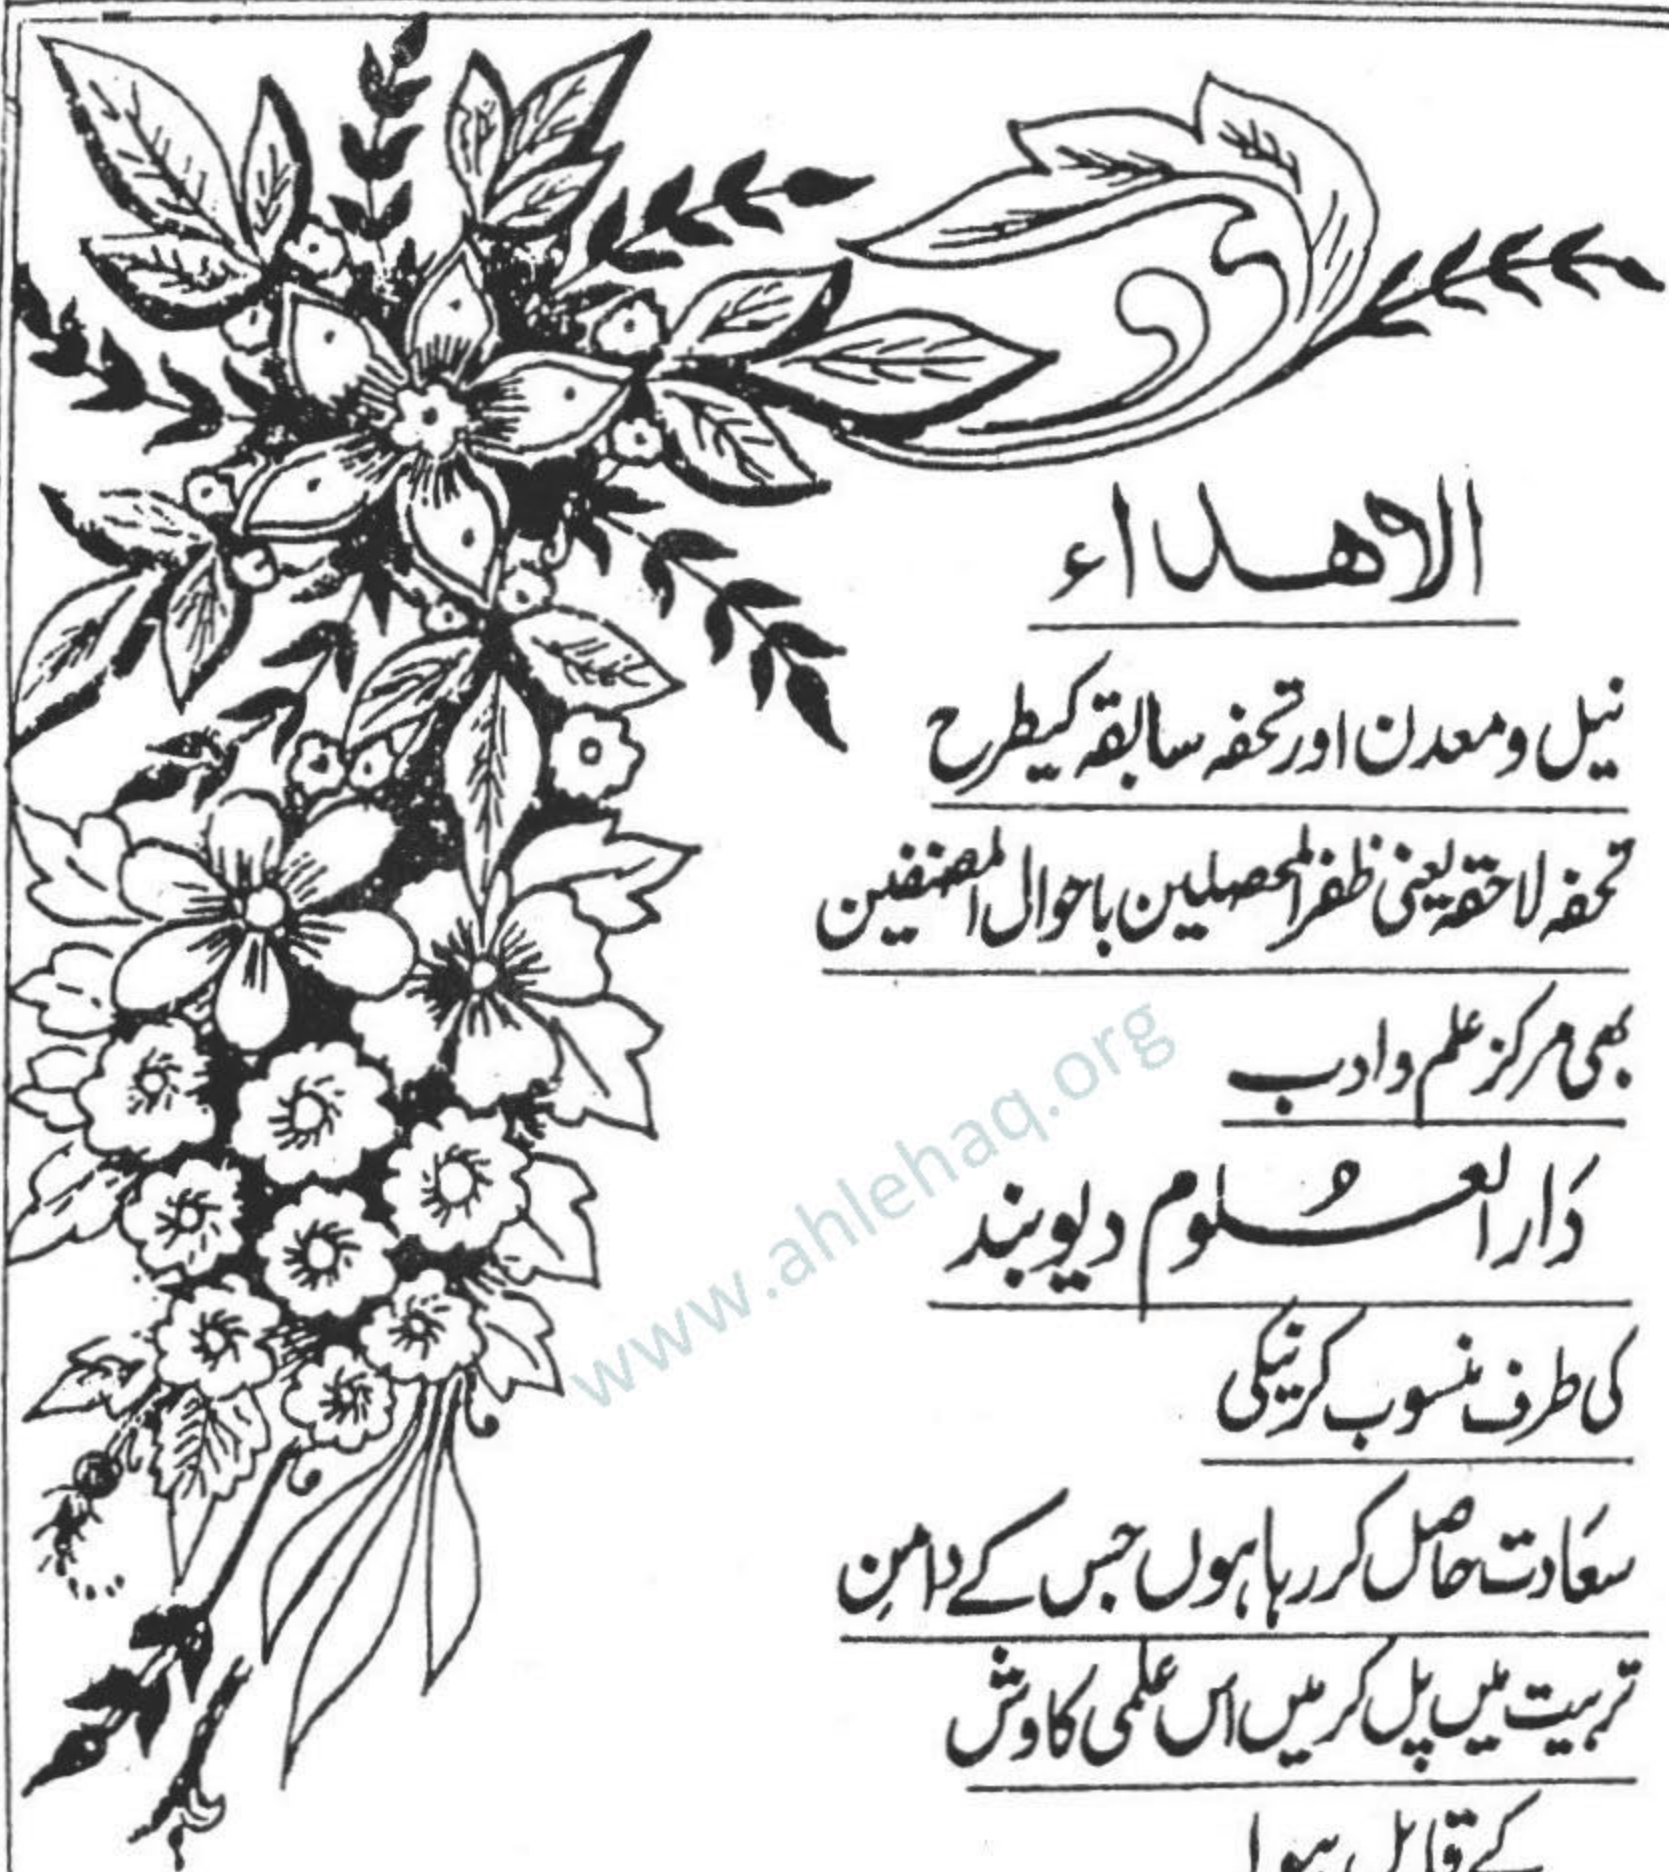 الاهداء
نیل و معدن اور تحفہ سابقہ کیطرح
تحفہ لاحقہ یعنی ظفر المحصلین باحوال المصنفین
بھی مرکز علم و ادب
دَار العُلوم دیوبند
کی طرف منسوب کرنیکی
سعَادت حَاصل کر رہا ہوں جس کے دامنِ
تربیت میں پل کر میں اس علمی کاوش
کے قابل ہوا
www.ahlehaq.org